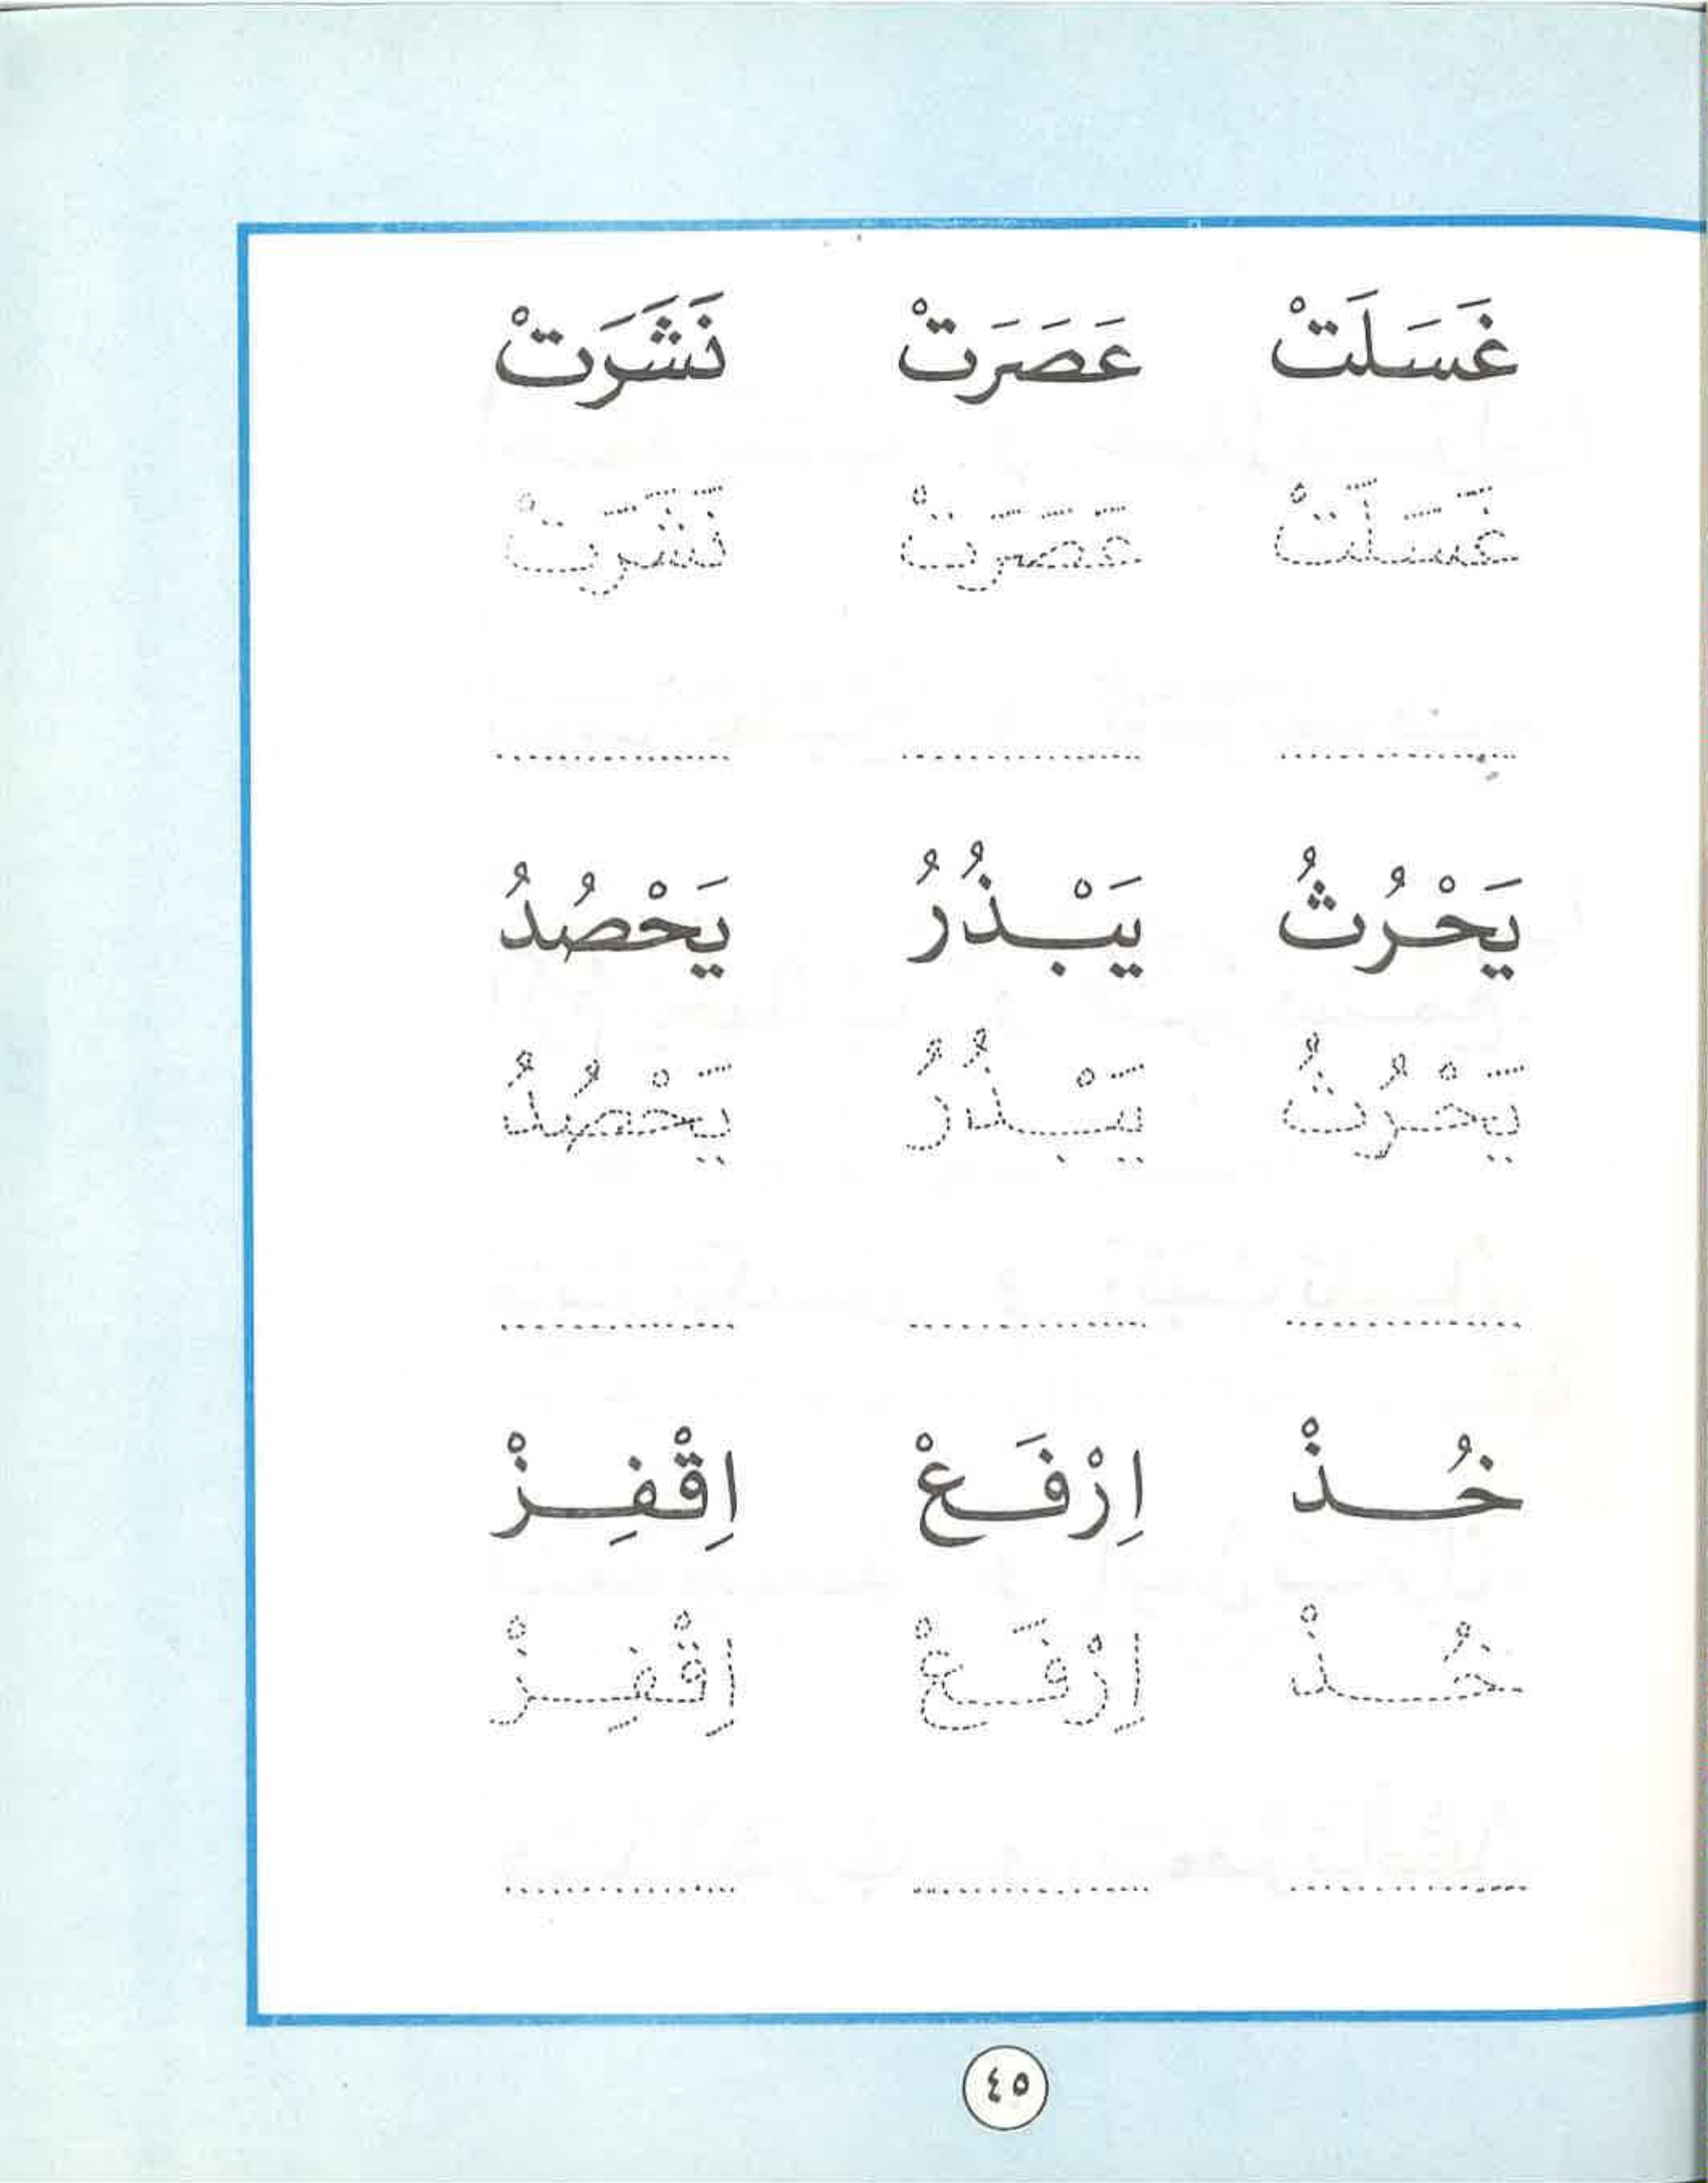 غَسَلَتْ عَصَرَتْ نَشَرَتْ
غَسَلَتْ عَصَرَتْ نَشَرَتْ
يَحْرُثُ يَبْذُرُ يَحْصُدُ
يَحْرُثُ يَبْذُرُ يَحْصُدُ
خُذْ اِرْفَعْ اِقْفِزْ
خُذْ اِرْفَعْ اِقْفِزْ
٤٥